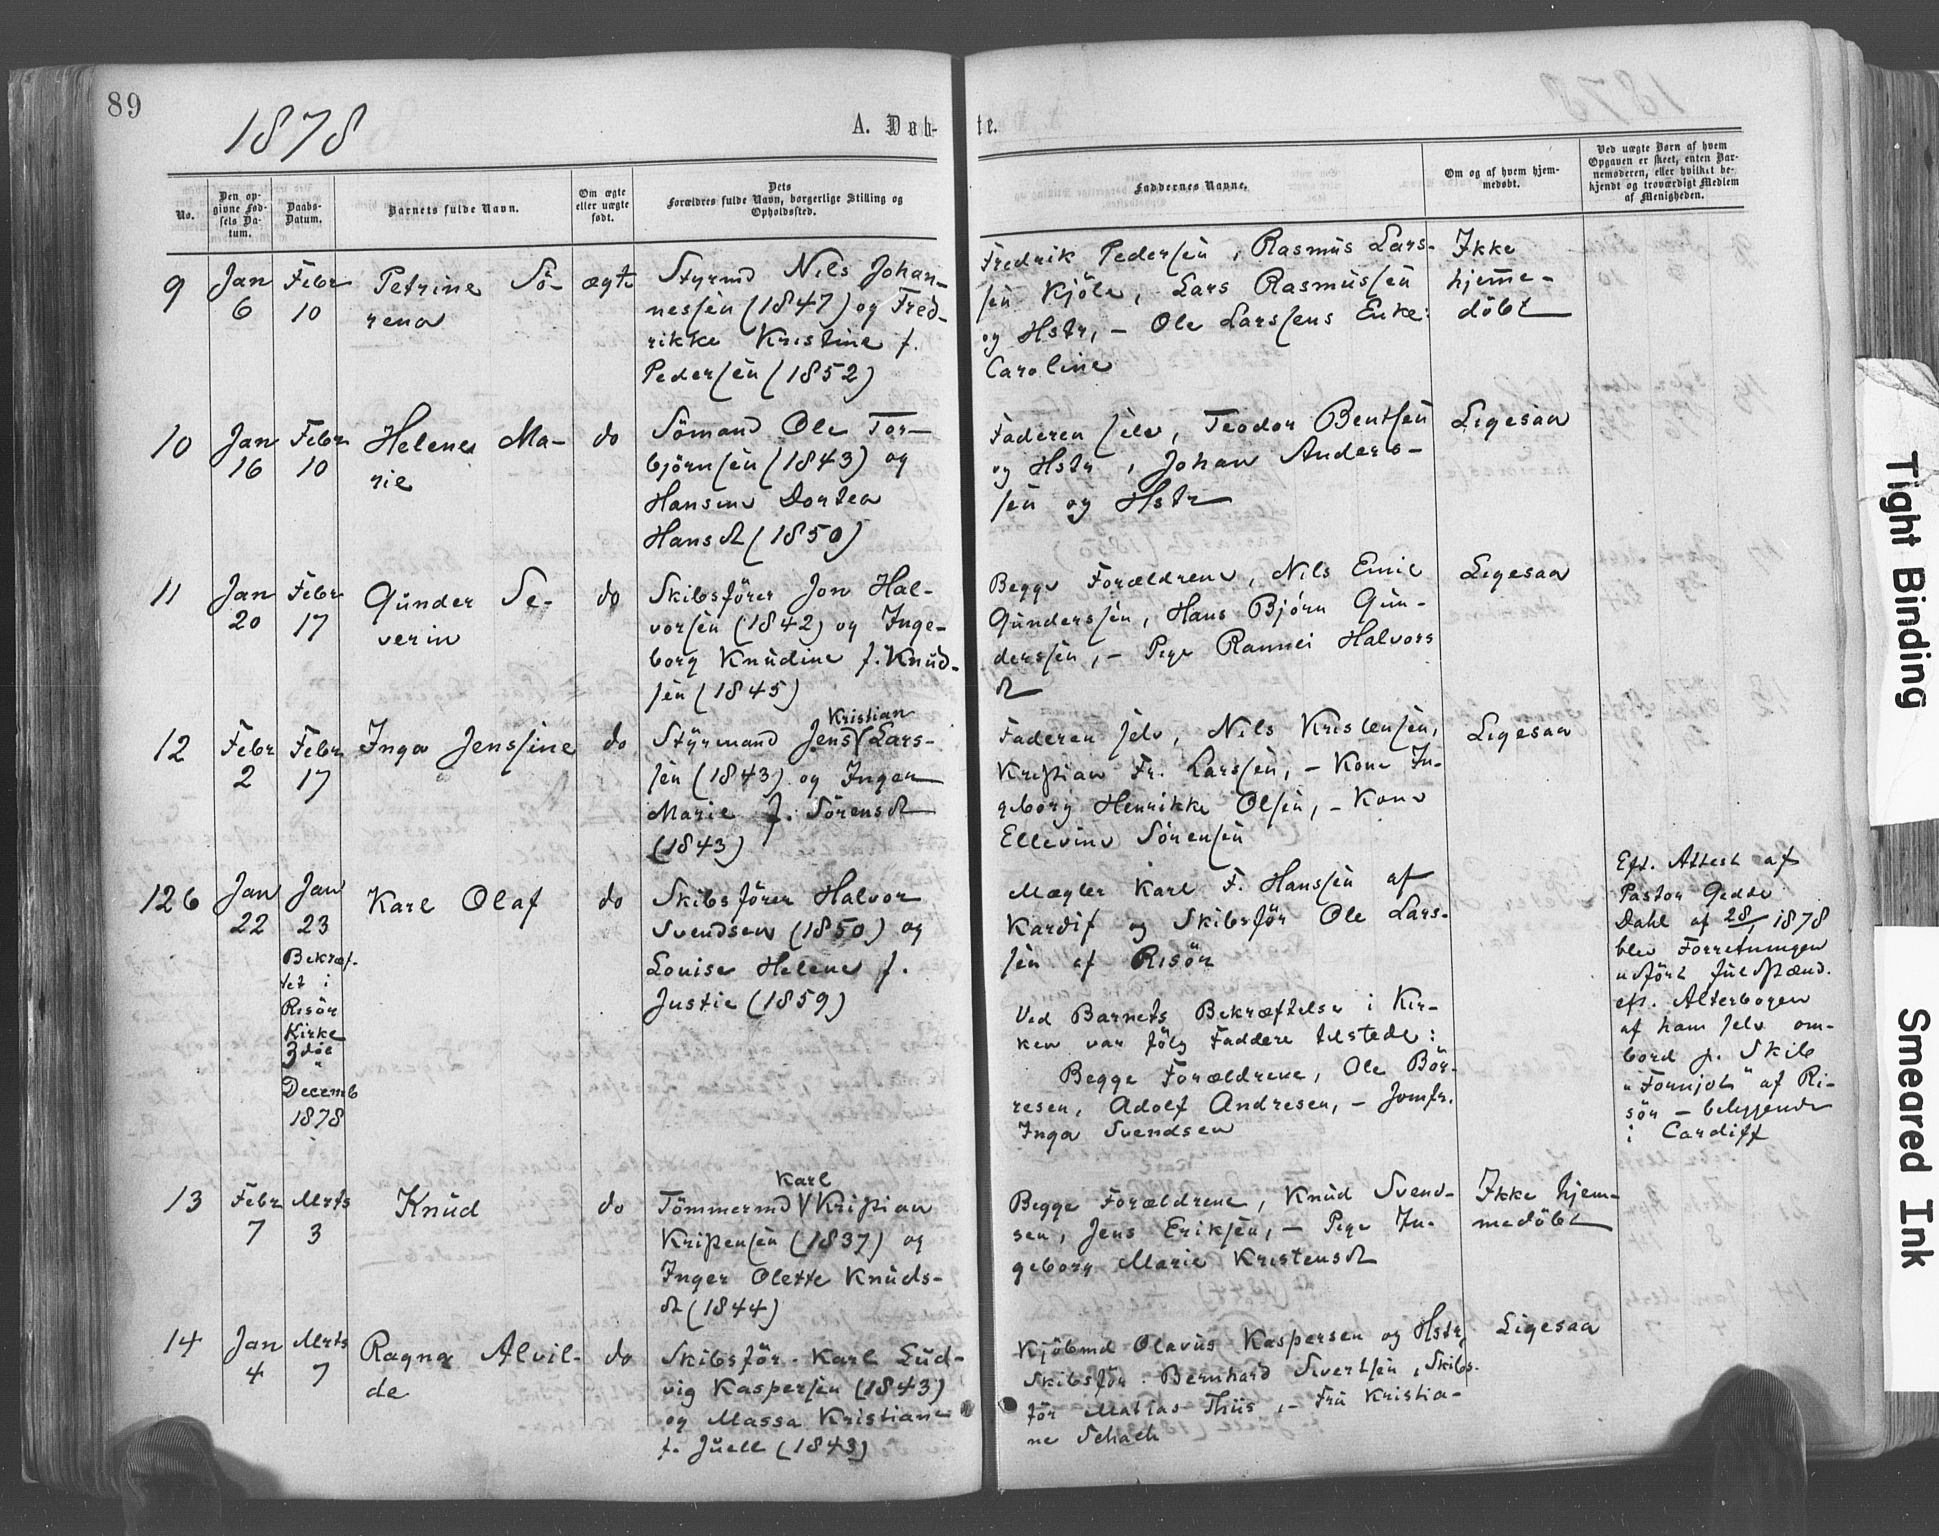 89
1878
A. Døb-
te.
No.
Den op-
givne Fød-
sels Da-
tum.
Daabs-
Datum.
Barnets fulde Navn.
Om ægte
eller uægte
født.
Dets
Forældres fulde Navn, borgerlige Stilling og
Opholdssted.
Faddernes Navne.
Om og af hvem hjem-
medøbt.
Ved uægte Børn af hvem
Opgaven er skeet, enten Bar-
nemoderen, eller hvilket be-
kjendt og troværdigt Medlem
af Menigheden.
9
Jan
6
Febr
10
Petrine Sö-
rena
ægte
Styrmd Nils Johan-
nessen (1847) og Fred-
rikke Kristine f.
Pedersen (1852)
Fredrik Pedersen, Rasmus Lars-
sen Kjöle, Lars Rasmussen
og Hstr, – Ole Larssens Enke:
Caroline
Ikke
hjemme-
döbt
10
Jan
16
Febr
10
Helene Ma-
rie
do
Sömand Ole Tor-
björnsen (1843) og
Hansine Dortea
Hansdt (1850)
Faderen selv, Teodor Bentsen
og Hstr, Johan Anders-
sen og Hstr
Ligesaa
11
Jan
20
Febr
17
Gunder Se-
verin
do
Skibsförer Jon Hal-
vorsen (1842) og Inge-
borg Knudine f. Knud-
sen (1845)
Begge Forældrene, Nils Emil
Gunderssen, Hans Björn Gun-
derssen, – Pige Rannei Halvors
dt
Ligesaa
12
Febr
2
Febr
17
Inga Jenssine
do
Kristian
Styrmand Jens Lars-
sen (1843) og Inger
Marie f. Sörensdt
(1843)
Faderen selv, Nils Kristensen,
Kristian Fr. Larssen, – Kone In-
geborg Henrikke Olsen, – Kone
Ellevine Sörensen
Ligesaa
12b
Jan
22
Jan
23
Bekræf-
tet i
Risör
Kirke
3die
Decemb
1878
Karl Olaf
do
Skibsförer Halvor
Svendsen (1850) og
Louise Helene f.
Justie (1859)
Mægler Karl F. Hanssen af
Kardif og Skibsför Ole Lars-
sen af Risör
Ved Barnets Bekræftelse i Kir-
ken var fölg Faddere tilstede:
Begge Forældrene, Ole Bör-
resen, Adolf Andresen, – Jomfr.
Inga Svendsen
Eft. Attest af
Pastor Gedde
Dahl af 28/1 1878
blev Forretningen
udfört fuldstænd.
eft. Alterbogen
af ham selv om-
bord p. Skib
"Fornjot" af Ri-
sör – beliggende
i Cardiff
13
Febr
7
Mrts
3
Knud
do
Karl
Tömmermd Kristian
Kristensen (1837) og
Inger Olette Knuds-
dt (1844)
Begge Forældrene, Knud Svend-
sen, Jens Eriksen, – Pige In-
geborg Marie Kristensdt
Ikke hjem-
medöbt
14
Jan
4
Mrts
7
Ragna Alvil-
de
do
Skibsför. Karl Lud-
vig Kaspersen (1843)
og Massa Kristiane
f. Juell (1843)
Kjöbmd Olavus Kaspersen og Hstr,
Skibsför. Bernhard Sivertsen, Skibs-
för Matias Thiis, – Fru Kristia-
ne Schach
Ligesaa
Tight Binding
Smeared Ink